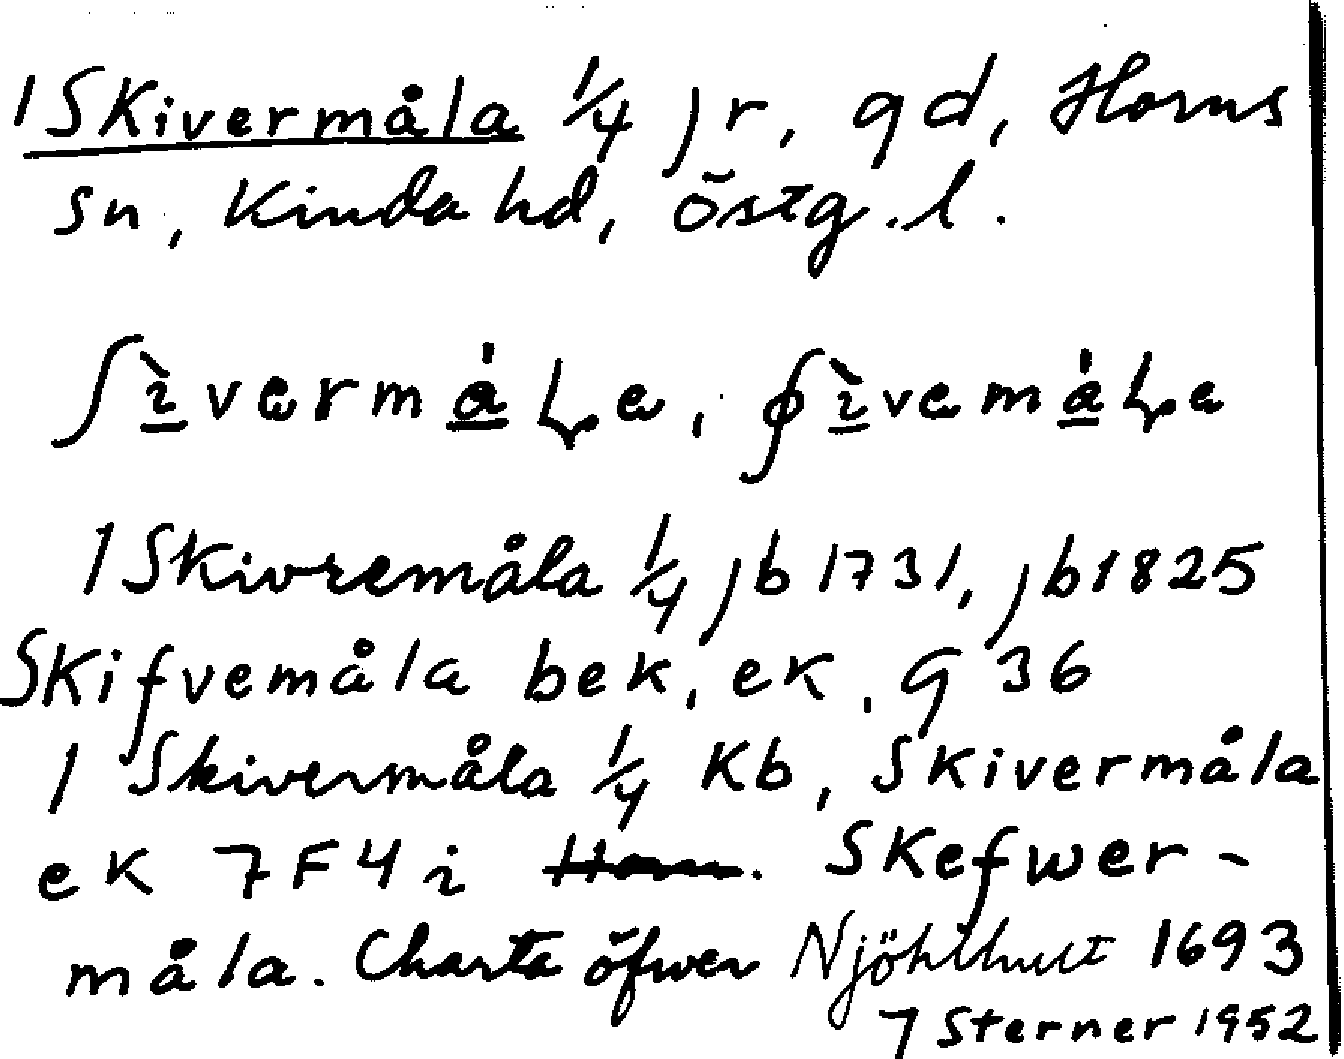 1 Skivermåla 1/4 jr, gd, Horns
sn, Kinda hd, Östg. l.
1 Skivremåla 1/4 jb 1731, jb 1825
Skifvemåla bek, ek, g 36
1 Skivermåla 1/4 Kb, Skivermåla
ek 7F4i Skefwer-
måla. Charta öfwer 1693
Sterner 1952